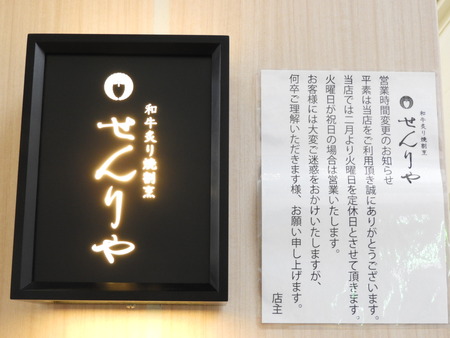 和牛炙り焼割烹
せんりや
和牛炙り焼割烹
せんりや
営業時間変更のお知らせ
平素は当店をご利用頂き誠にありがとうございます。
当店では二月より火曜日を定休日とさせて頂きます。
火曜日が祝日の場合は営業いたします。
お客様には大変ご迷惑をおかけいたしますが、
何卒ご理解いただきます様、お願い申し上げます。
店主